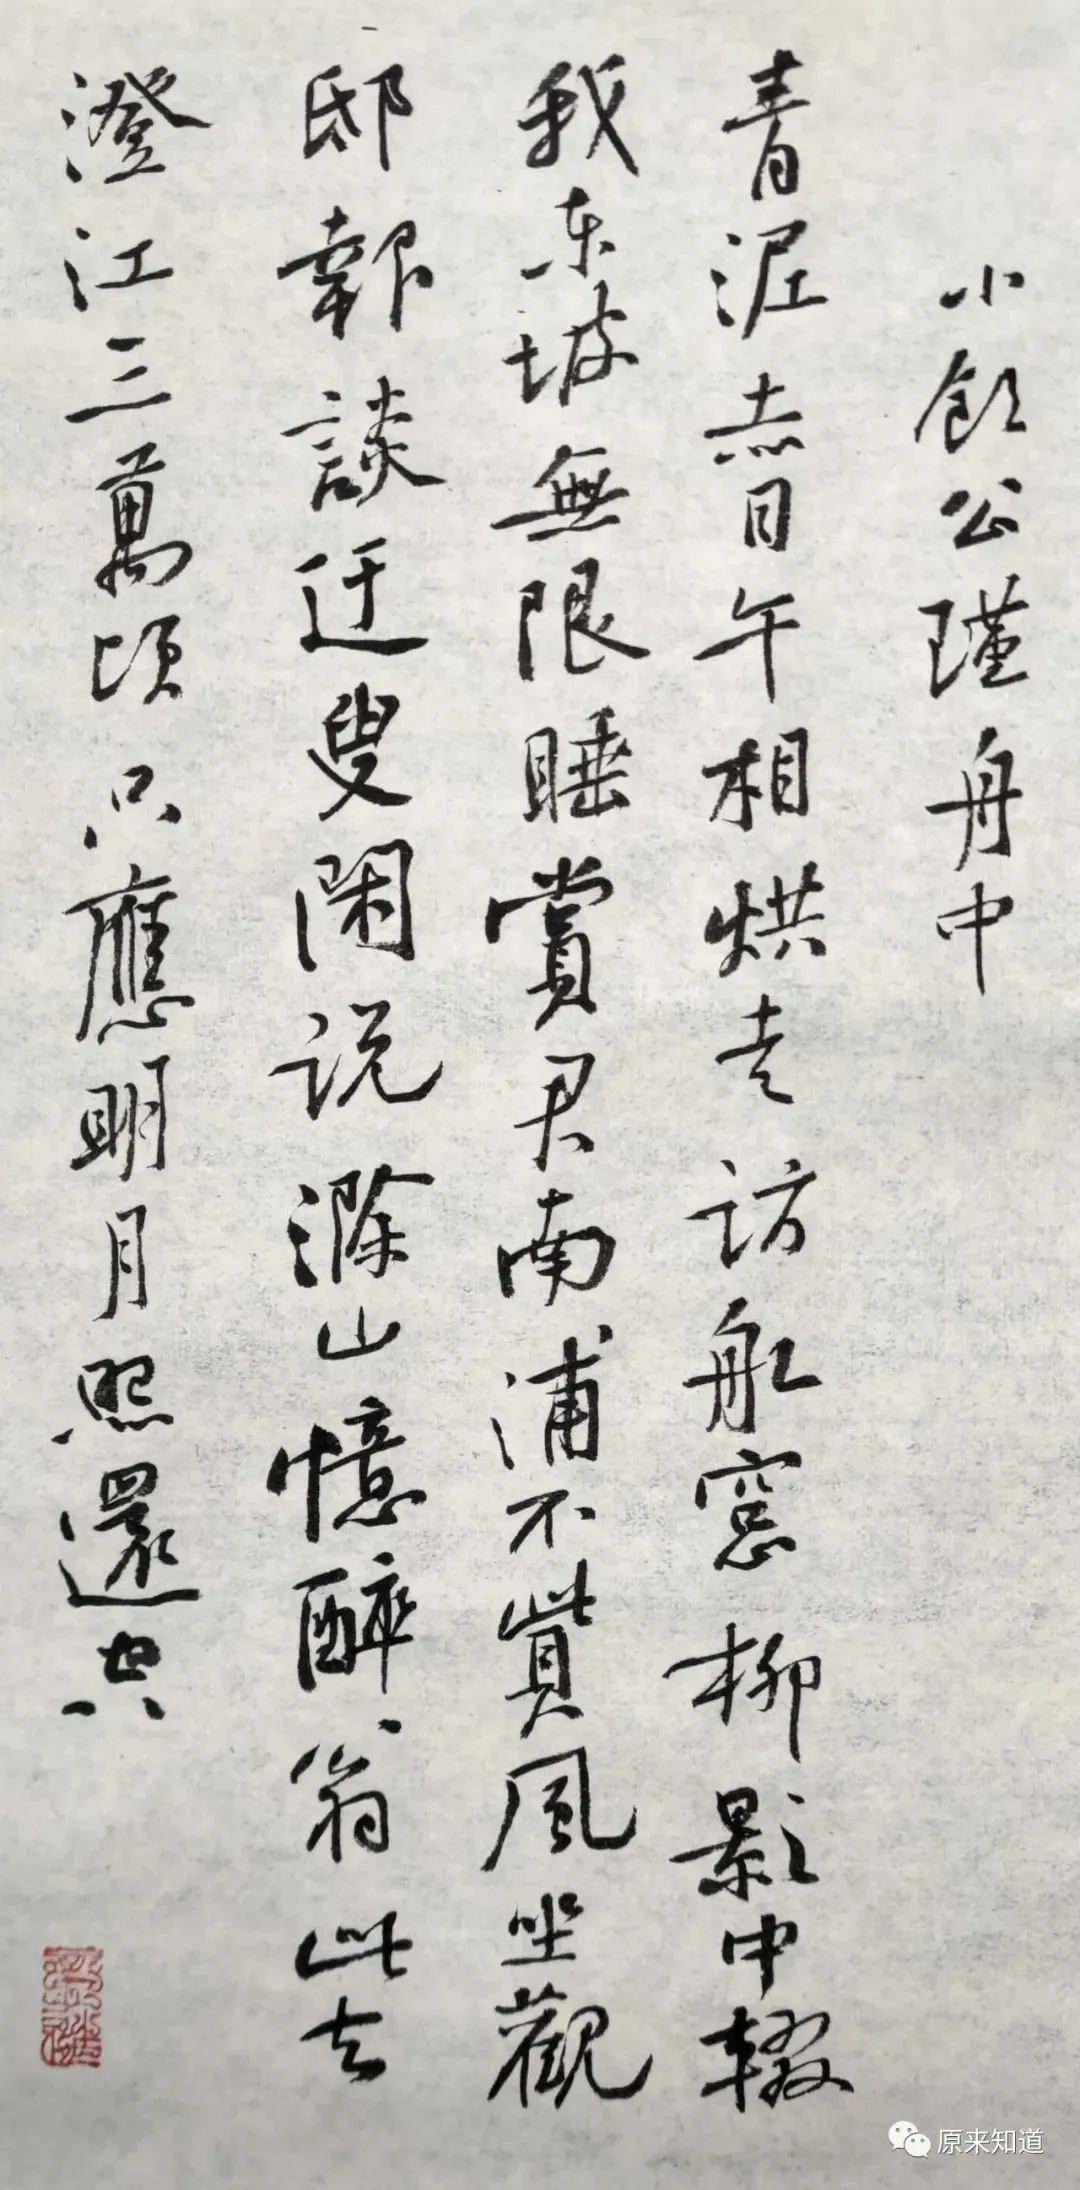 小飲公瑾舟中
青泥赤日午相烘走訪船窓柳影中輟
我東坡無限睡賞君南浦不貲風坐觀
邸報談迂叟閑说滁山憶醉翁此去
澄江三萬頃只應明月照還空
原来知道